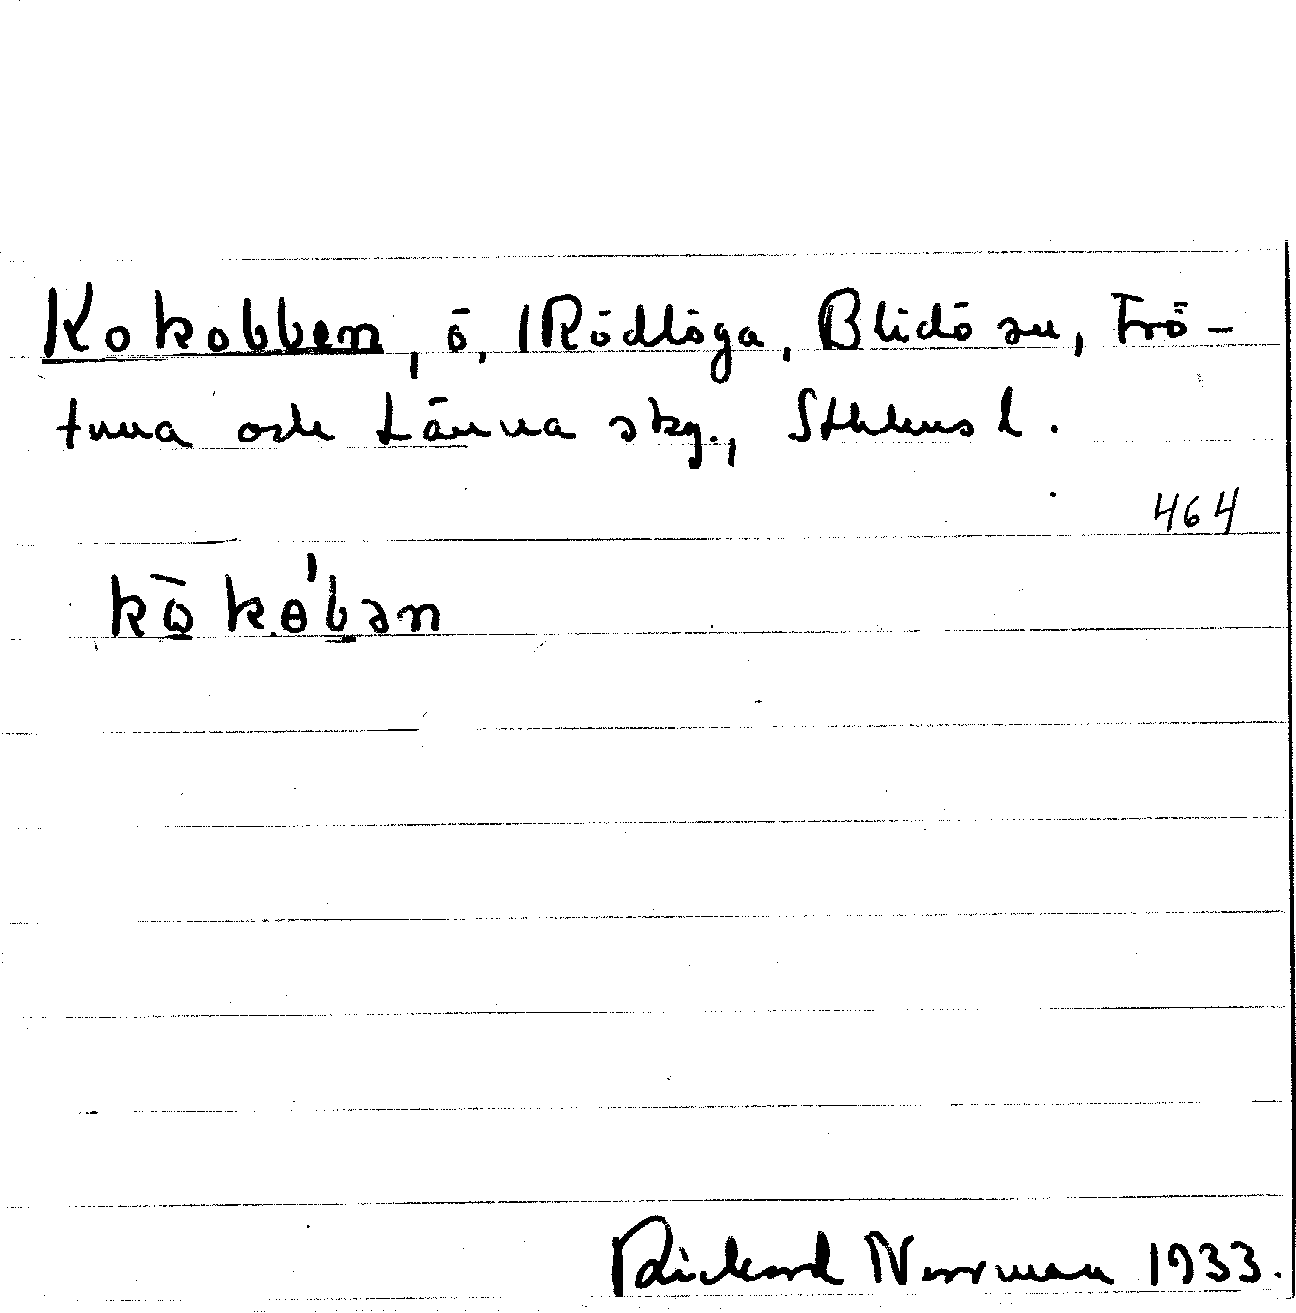 Kokobben, ö, Rödlöga, Blidö sn, Frö-
tuna och Länna skg., Sthlms l.
464
kō̱ kɵ'ḇən
Rickard Norrman 1933.